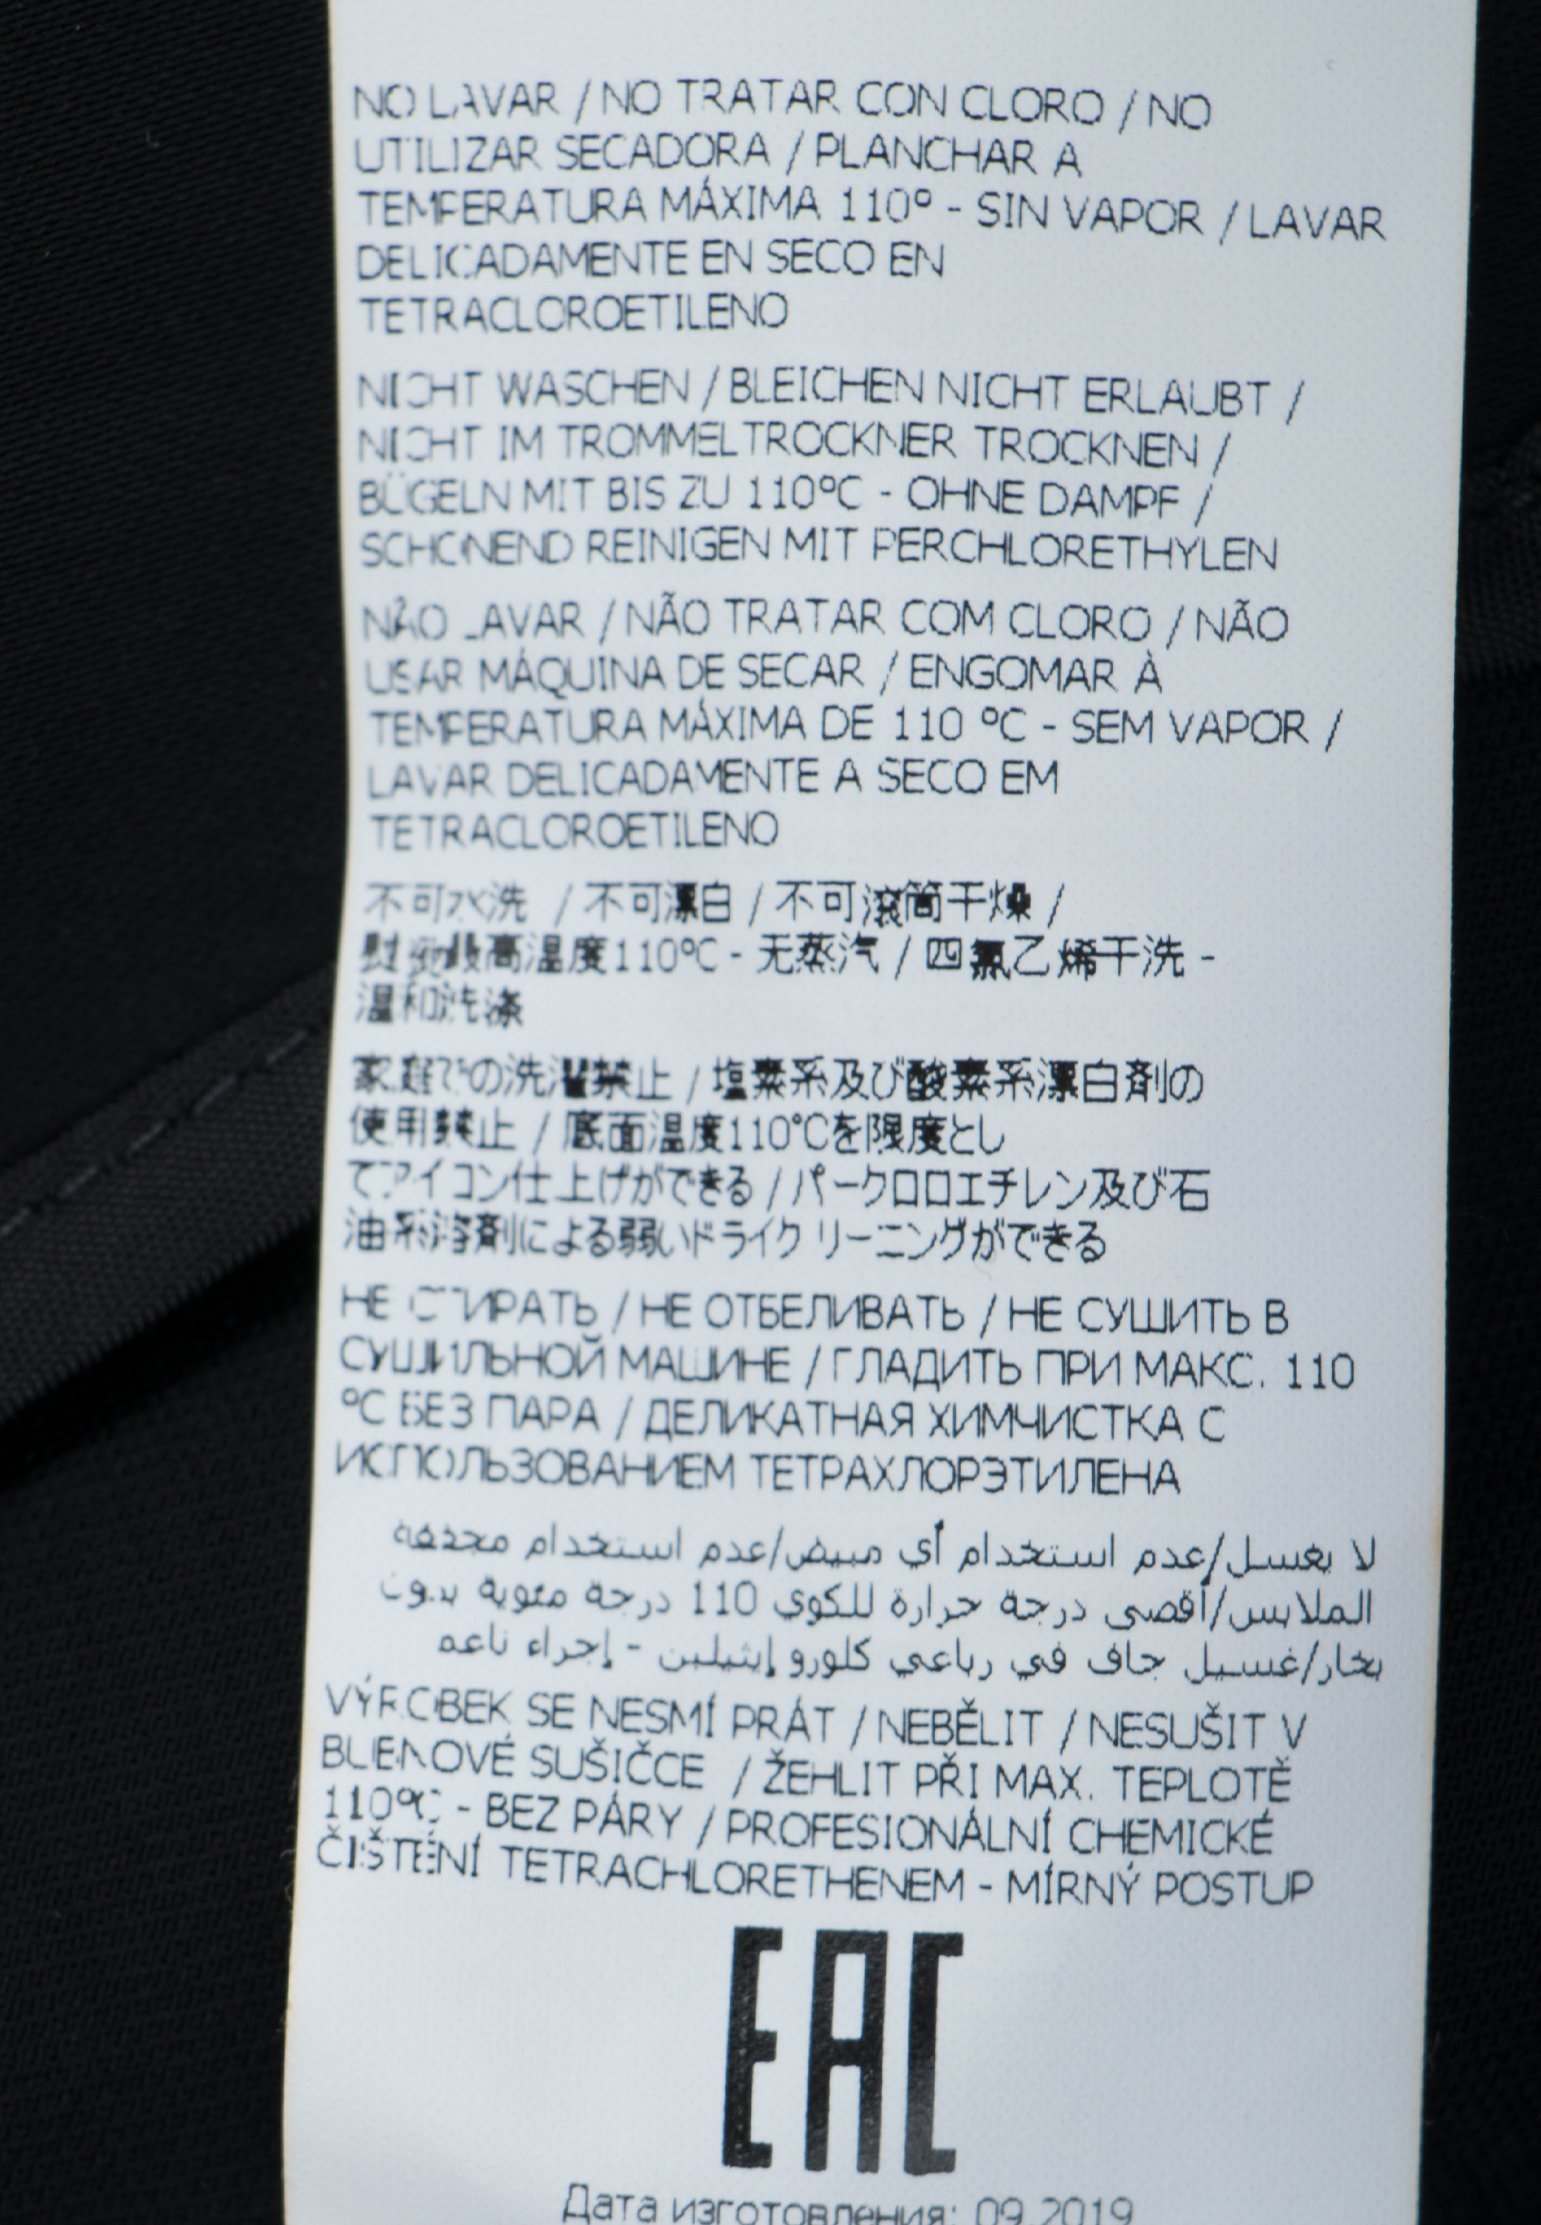 NO LAVAR / NO TRATAR CON CLORO / NO
UTILIZAR SECADORA / PLANCHAR A
TEMPERATURA MÁXIMA 110º - SIN VAPOR / LAVAR
DELICADAMENTE EN SECO EN
TETRACLOROETILENO
NICHT WASCHEN / BLEICHEN NICHT ERLAUBT /
NICHT IM TROMMELTROCKNER TROCKNEN /
BÜGELN MIT BIS ZU 110ºC - OHNE DAMPF /
SCHONEND REINIGEN MIT PERCHLORETHYLEN
NÃO LAVAR / NÃO TRATAR COM CLORO / NÃO
USAR MÁQUINA DE SECAR / ENGOMAR À
TEMPERATURA MÁXIMA DE 110 ºC - SEM VAPOR /
LAVAR DELICADAMENTE A SECO EM
TETRACLOROETILENO
不可水洗 / 不可漂白 / 不可滚筒干燥 /
熨烫最高温度110ºC - 无蒸汽 / 四氯乙烯干洗 -
温和洗涤
家庭での洗濯禁止 / 塩素系及び酸素系漂白剤の
使用禁止 / 底面温度110℃を限度とし
てアイコン仕上げができる / パークロロエチレン及び石
油系溶剤による弱いドライクリーニングができる
НЕ СТИРАТЬ / НЕ ОТБЕЛИВАТЬ / НЕ СУШИТЬ В
СУШИЛЬНОЙ МАШИНЕ / ГЛАДИТЬ ПРИ МАКС. 110
ºC БЕЗ ПАРА / ДЕЛИКАТНАЯ ХИМЧИСТКА С
ИСПОЛЬЗОВАНИЕМ ТЕТРАХЛОРЭТИЛЕНА
لا يغسل/عدم استخدام أي مبيض/عدم استخدام مجففة
الملابس/أقصى درجة حرارة للكوي 110 درجة مئوية بدون
بخار/غسيل جاف في رباعي كلورو إيثيلين - إجراء ناعم
VÝROBEK SE NESMÍ PRÁT / NEBĚLIT / NESUŠIT V
BUBNOVÉ SUŠIČCE / ŽEHLIT PŘI MAX. TEPLOTĚ
110ºC - BEZ PÁRY / PROFESIONÁLNÍ CHEMICKÉ
ČIŠTĚNÍ TETRACHLORETHENEM - MÍRNÝ POSTUP
EAC
Дата изготовления: 09.2019